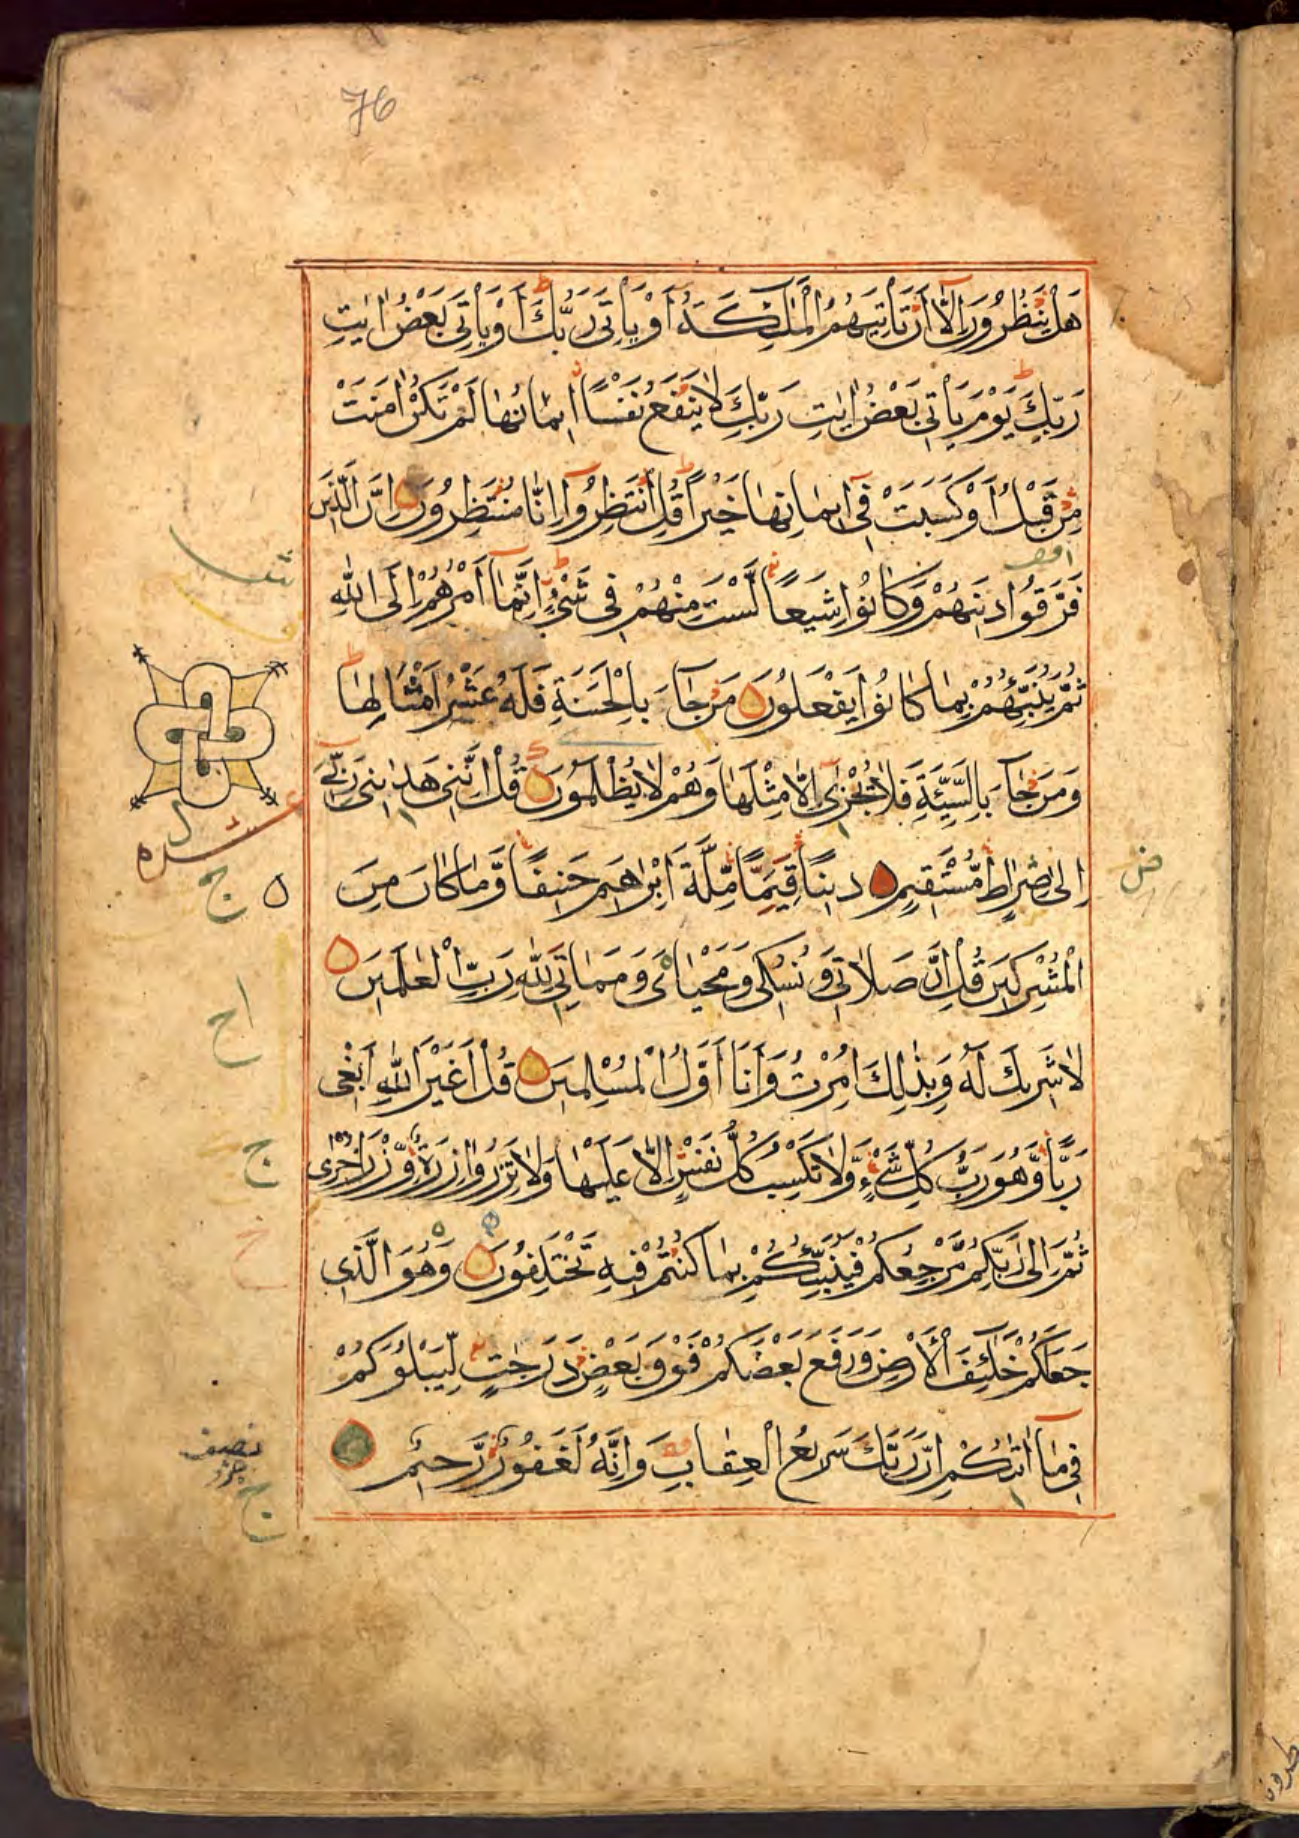 76
هَلْ يَنْظُرُونَ اِلَّا اَنْ تَاْتِيَهُمُ الْمَلٰئِكَةُ اَوْ يَاْتِىَ رَبُّكَ اَوْ يَاْتِىَ بَعْضُ اٰيٰتِ
رَبِّكَ يَوْمَ يَاْتِى بَعْضُ اٰيٰتِ رَبِّكَ لَا يَنْفَعُ نَفْسًا اِيمَانُهَا لَمْ تَكُنْ اٰمَنَتْ
مِنْ قَبْلُ اَوْ كَسَبَتْ فِى اِيمَانِهَا خَيْرًا قُلِ انْتَظِرُوا اِنَّا مُنْتَظِرُونَ اِنَّ الَّذِينَ
فَرَّقُوا دِينَهُمْ وَكَانُوا شِيَعًا لَسْتَ مِنْهُمْ فِى شَىْءٍ اِنَّمَا اَمْرُهُمْ اِلَى اللّٰهِ
ثُمَّ يُنَبِّئُهُمْ بِمَا كَانُوا يَفْعَلُونَ مَنْ جَاءَ بِالْحَسَنَةِ فَلَهُ عَشْرُ اَمْثَالِهَا
وَمَنْ جَاءَ بِالسَّيِّئَةِ فَلَا يُجْزٰى اِلَّا مِثْلَهَا وَهُمْ لَا يُظْلَمُونَ قُلْ اِنَّنِى هَدٰينِى رَبِّى
اِلٰى صِرَاطٍ مُسْتَقِيمٍ دِينًا قِيَمًا مِلَّةَ اِبْرٰهِيمَ حَنِيفًا وَمَا كَانَ مِنَ
الْمُشْرِكِينَ قُلْ اِنَّ صَلَاتِى وَنُسُكِى وَمَحْيَاىَ وَمَمَاتِى لِلّٰهِ رَبِّ الْعٰلَمِينَ
لَا شَرِيكَ لَهُ وَبِذٰلِكَ اُمِرْتُ وَاَنَا اَوَّلُ الْمُسْلِمِينَ قُلْ اَغَيْرَ اللّٰهِ اَبْغِى
رَبًّا وَهُوَ رَبُّ كُلِّ شَىْءٍ وَلَا تَكْسِبُ كُلُّ نَفْسٍ اِلَّا عَلَيْهَا وَلَا تَزِرُ وَازِرَةٌ وِزْرَ اُخْرٰى
ثُمَّ اِلٰى رَبِّكُمْ مَرْجِعُكُمْ فَيُنَبِّئُكُمْ بِمَا كُنْتُمْ فِيهِ تَخْتَلِفُونَ وَهُوَ الَّذِى
جَعَلَكُمْ خَلٰئِفَ الْاَرْضِ وَرَفَعَ بَعْضَكُمْ فَوْقَ بَعْضٍ دَرَجٰتٍ لِيَبْلُوَكُمْ
فِى مَا اٰتٰيكُمْ اِنَّ رَبَّكَ سَرِيعُ الْعِقَابِ وَاِنَّهُ لَغَفُورٌ رَحِيمٌ